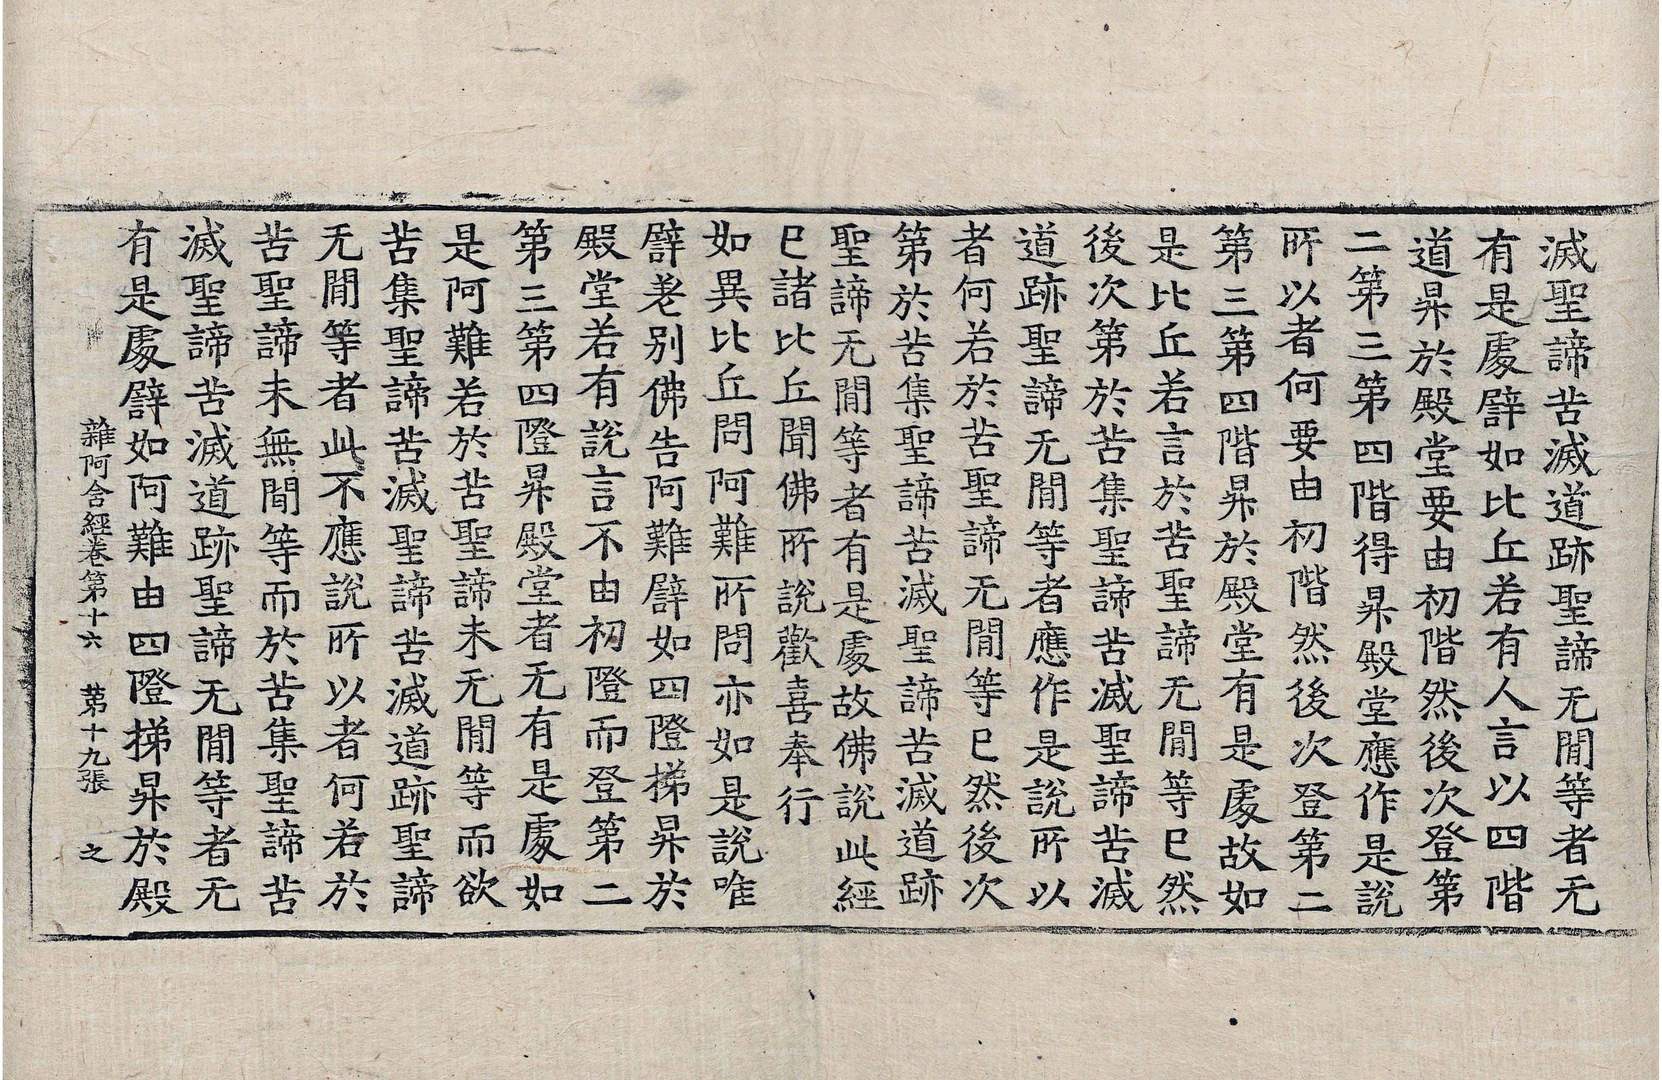 滅聖諦苦滅道跡聖諦无閒等者无
有是處譬如比丘若有人言以四階
道昇於殿堂要由初階然後次登第
二第三第四階得昇殿堂應作是說
所以者何要由初階然後次登第二
第三第四階昇於殿堂有是處故如
是比丘若言於苦聖諦无閒等已然
後次第於苦集聖諦苦滅聖諦苦滅
道跡聖諦无閒等者應作是說所以
者何若於苦聖諦无閒等已然後次
第於苦集聖諦苦滅聖諦苦滅道跡
聖諦无閒等者有是處故佛說此經
已諸比丘聞佛所說歡喜奉行
如異比丘問阿難所問亦如是說唯
譬差別佛告阿難譬如四隥梯昇於
殿堂若有說言不由初隥而登第二
第三第四隥昇殿堂者无有是處如
是阿難若於苦聖諦未无閒等而欲
苦集聖諦苦滅聖諦苦滅道跡聖諦
无閒等者此不應說所以者何若於
苦聖諦未無閒等而於苦集聖諦苦
滅聖諦苦滅道跡聖諦无閒等者无
有是處譬如阿難由四隥梯昇於殿
雜阿含經卷第十六 第十九張 之